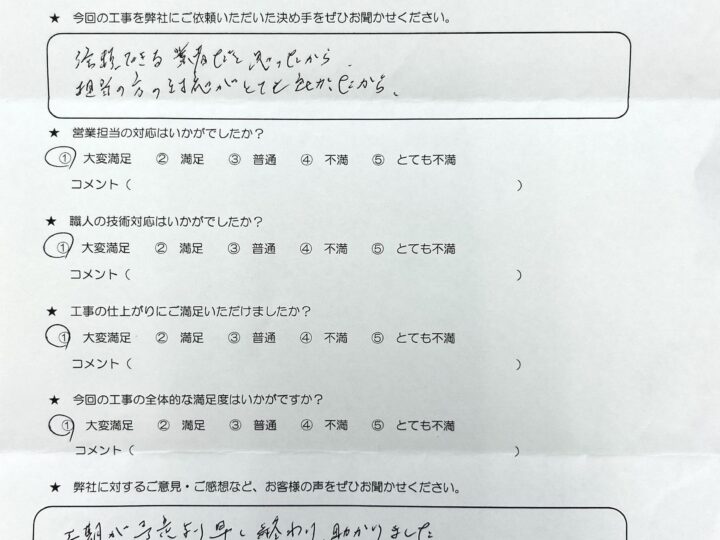 ★ 今回の工事を弊社にご依頼いただいた決め手をぜひお聞かせください。
信頼できる業者だと思ったから、
担当の方の対応がとても
★ 営業担当の対応はいかがでしたか？
① 大変満足 ② 満足 ③ 普通 ④ 不満 ⑤ とても不満
コメント（ ）
★ 職人の技術対応はいかがでしたか？
① 大変満足 ② 満足 ③ 普通 ④ 不満 ⑤ とても不満
コメント（ ）
★ 工事の仕上がりにご満足いただけましたか？
① 大変満足 ② 満足 ③ 普通 ④ 不満 ⑤ とても不満
コメント（ ）
★ 今回の工事の全体的な満足度はいかがですか？
① 大変満足 ② 満足 ③ 普通 ④ 不満 ⑤ とても不満
コメント（ ）
★ 弊社に対するご意見・ご感想など、お客様の声をぜひお聞かせください。
工期が予定より早く終わり、助かりました